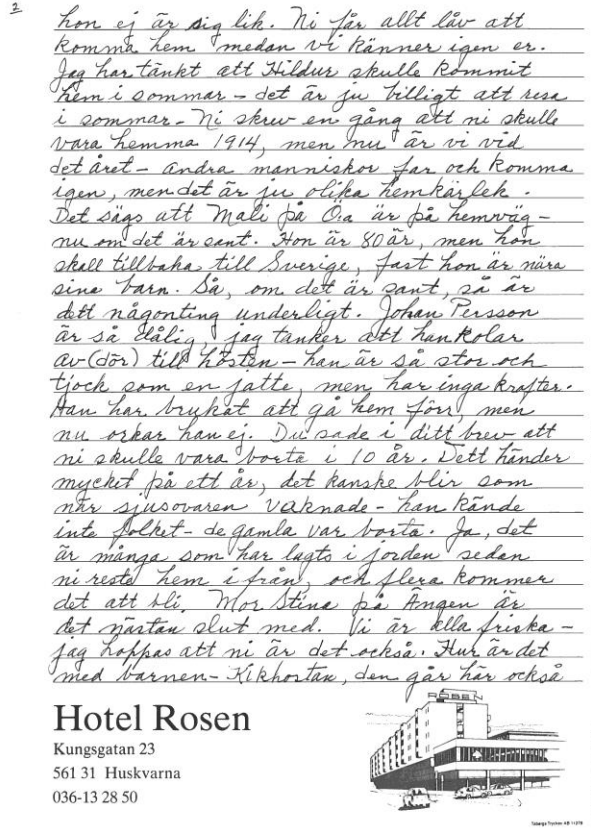 2
hon ej är sig lik. Ni får allt låv att
komma hem medan vi känner igen er.
Jag har tänkt att Hildur skulle kommit
hem i sommar – det är ju billigt att resa
i sommar – Ni skrev en gång att ni skulle
vara hemma 1914, men nu är vi vid
det året – andra manniskor far och komma
igen, men det är ju olika hemkärlek.
Det sägs att Mali på Ö:a är på hemväg –
nu om det är sant. Hon är 80 år, men hon
skall tillbaka till Sverige, fast hon är nära
sina barn. Så, om det är sant, så är
dett någonting underligt. Johan Persson
är så dålig, jag tanker att han kolar
av (dör) till hösten – han är så stor och
tjock som en jätte, men har inga krafter.
Han har brukat att gå hem förr, men
nu orkar han ej. Du sade i ditt brev att
ni skulle vara borta i 10 år. Dett händer
mycket på ett år, det kanske blir som
när sjusovaren vaknade – han kände
inte folket – de gamla var borta. Ja, det
är många som har lagts i jorden sedan
ni reste hem i från, och flera kommer
det att bli. Mor Stina på Ängen är
det nästan slut med. Vi är alla friska –
jag hoppas att ni är det också. Hur är det
med barnen – Kikhostan, den går här också
Hotel Rosen
Kungsgatan 23
561 31 Huskvarna
036-13 28 50